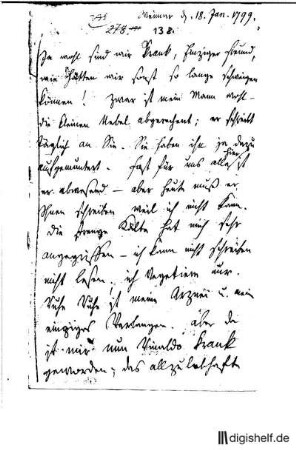 Weimar d. 18. Jan. 1799.
278
138.
Ja wohl sind wir Krank, Einziger Freund,
wie hätten wir sonst so lange schweigen
können! zwar ist mein Mann wohl
die kleinen Uebel abgerechnet; er schreibt
täglich an Sie. Sie haben ihn ja dazu
aufgemuntert. Fast für uns alle ist hier
er abwesend — aber heute muß er
Ihnen schreiben weil ich nicht kann.
Die strenge Kälte hat mich sehr
angegriffen — ich kann nicht schreiben
nicht lesen, ich Vegetire nur.
Ruhe Ruhe ist meine Arznei u. mein
einziges Verlangen. Aber da
ist mir nun Rinaldo Krank
geworden; das allzulebhafte
digishelf.de